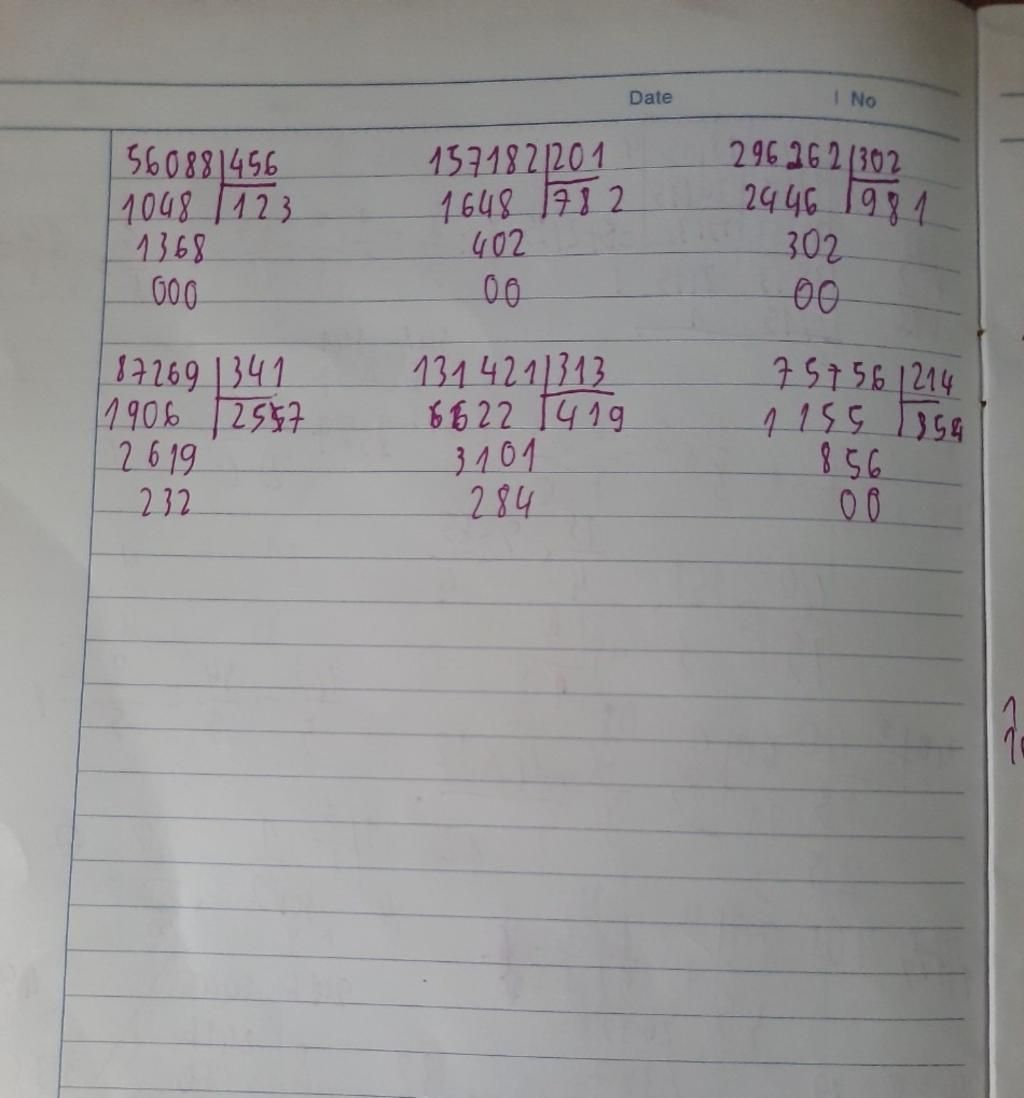 Date No
56088 456 157182 201 296262 302
1048 123 1648 782 2446 981
1368 402 302
000 00 00
87269 341 131421 313 75756 214
1906 2557 6622 419 1155 354
2619 3101 856
232 284 00